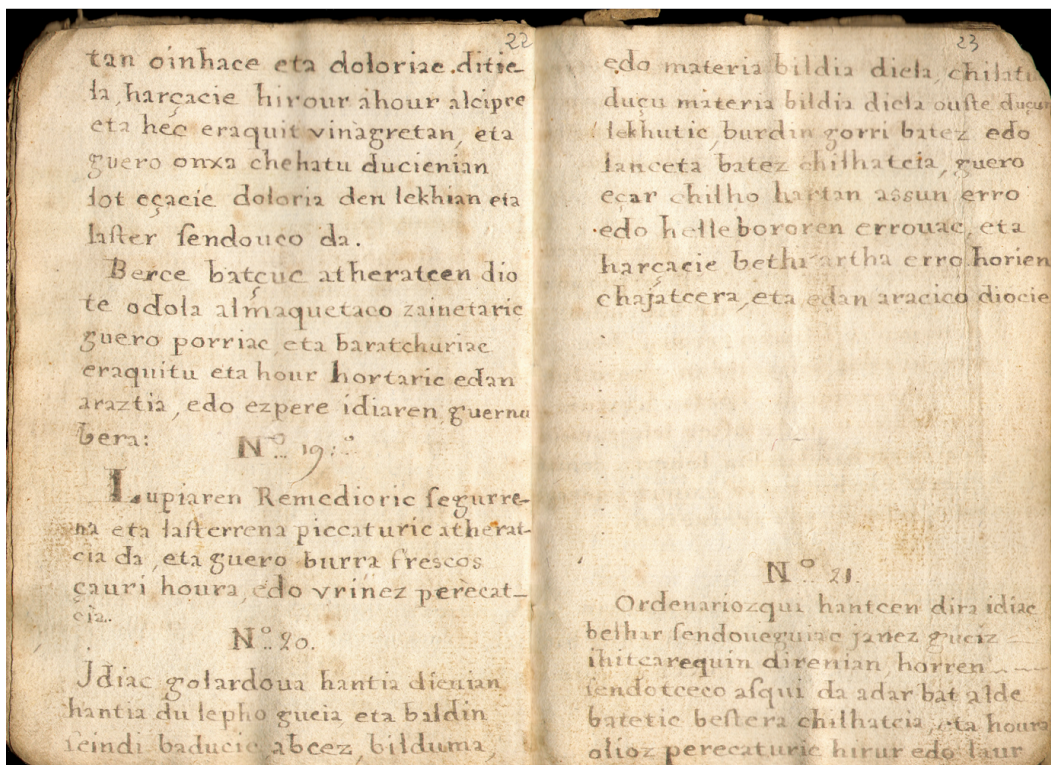 22
tan oinhace eta doloriac ditie
la, harçacie hirour ahour alcipre
eta hec eraquit vinagretan, eta
guero onxa chehatu ducienian
lot eçacie doloria den lekhian eta
laſter ſendouco da.
Berce batçuc atheratcen dio
te odola almaquetaco zainetaric
guero porriac eta baratchuriac
eraquitu eta hour hortaric edan
araztia, edo ezpere idiaren guernu
bera:
N.º 19:º
Lupiaren Remedioric ſegurre-
na eta laſterrena piccaturic atherat-
cia da, eta guero burra freſcos
çauri houra, edo vrinez perecat-
cia.
N.º 20.
Jdiac golardoua hantia dienian
hantia du lepho gucia eta baldin
ſeindi baducie abcez, bilduma,
23
edo materia bildia diela, chilatu
duçu materia bildia diela ouſte duçun
lekhutic, burdin gorri batez edo
lanceta batez chilhatcia, guero
eçar chilho hartan aſſun erro
edo helle bororen errouac, eta
harçacie bethi artha erro horien
chajatcera, eta edan aracico diocie
N.º 21.
Ordenariozqui hantcen dira idiac
belhar ſendoueguiac janez guciz
ihitcarequin direnian horren
ſendotceco aſqui da adar bat alde
batetic beſtera chilhatcia, eta houra
olioz perecaturic hirur edo laur